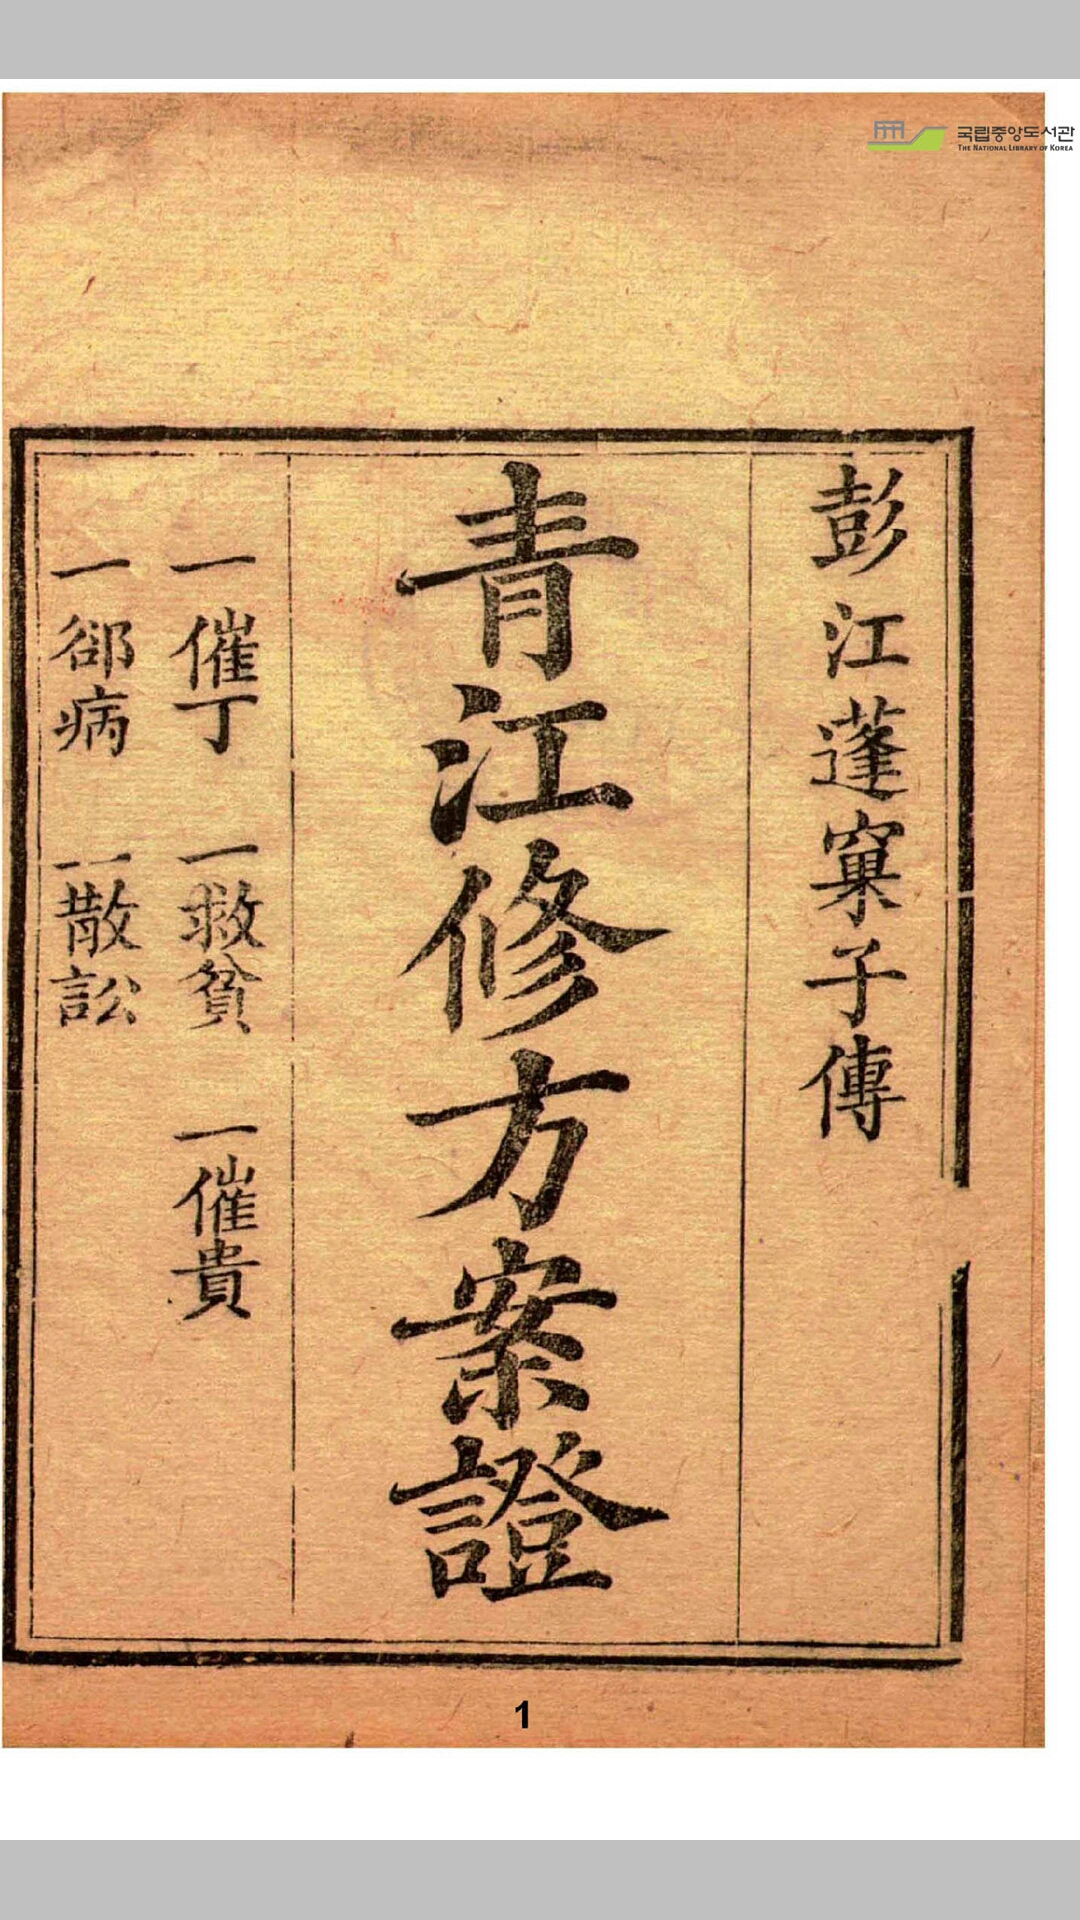 국립중앙도서관
THE NATIONAL LIBRARY OF KOREA
彭江蓬窠子傳
青江修方案證
一催丁 一救貧 一催貴
一郤病 一散訟
1